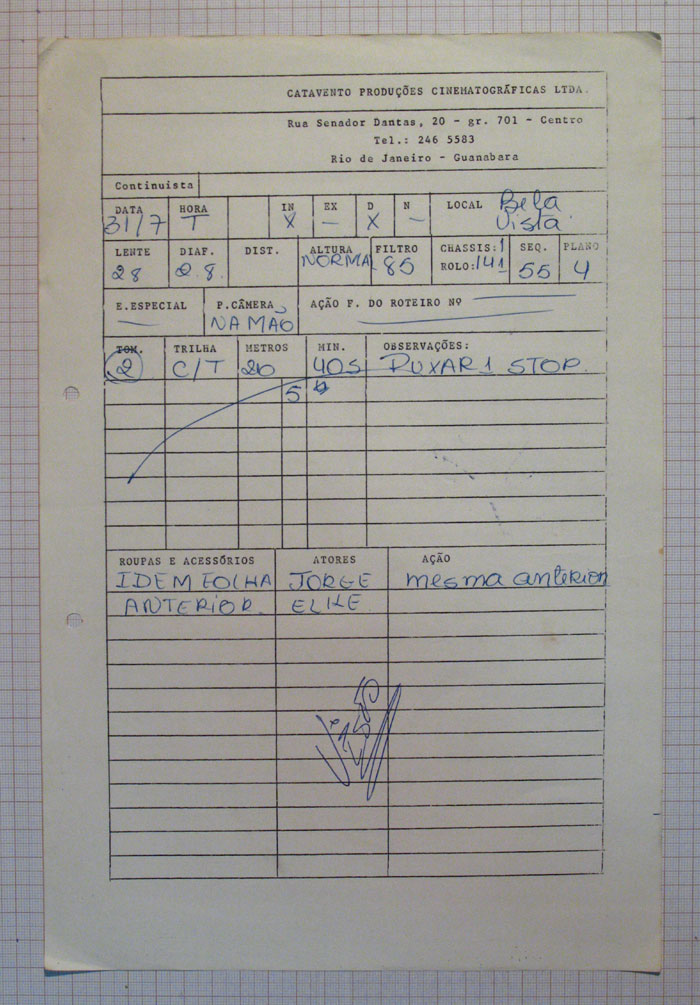 CATAVENTO PRODUÇÕES CINEMATOGRÁFICAS LTDA.
Rua Senador Dantas, 20 - gr. 701 - Centro
Tel.: 246 5583
Rio de Janeiro - Guanabara
Continuista
DATA HORA IN EX D N LOCAL Bela
31/7 T X — X — Vista
LENTE DIAF. DIST. ALTURA FILTRO CHASSIS: 1 SEQ. PLANO
28 2.8 NORMAL 85 ROLO: 141 55 4
E.ESPECIAL P.CÂMERA AÇÃO F. DO ROTEIRO Nº
— NA MÃO
TOM. TRILHA METROS MIN. OBSERVAÇÕES:
2 C/T 20 40S PUXAR 1 STOP.
5
ROUPAS E ACESSÓRIOS ATORES AÇÃO
IDEM FOLHA JORGE mesma anterior
ANTERIOR